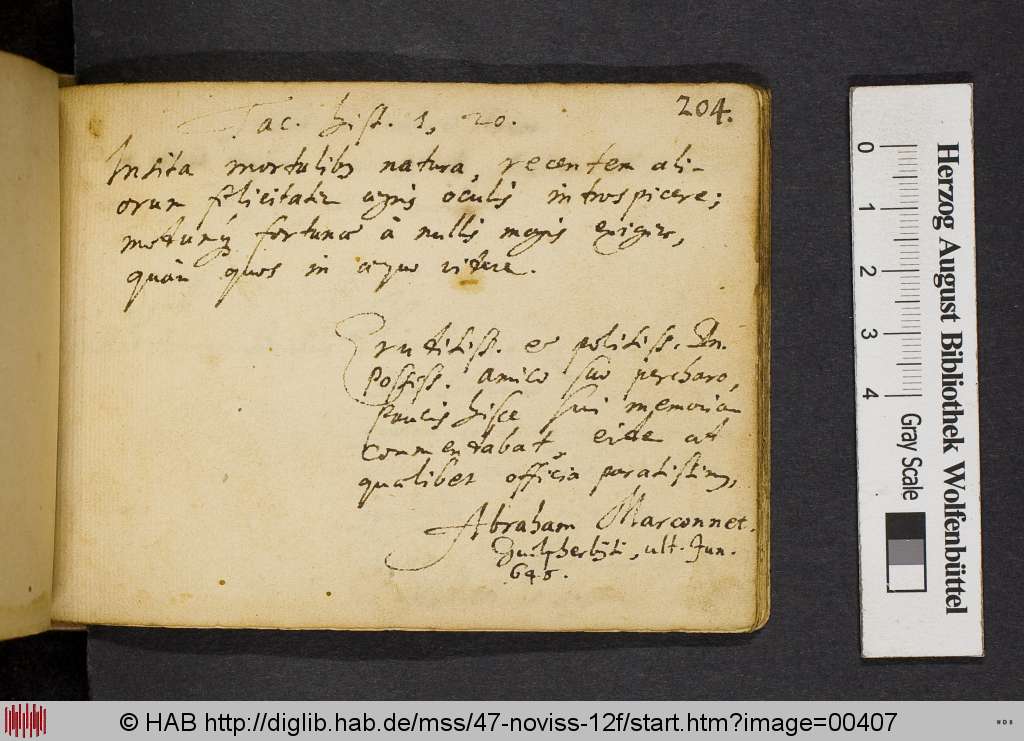 204.
Tac. hist. 1, 20.
Insita mortalibꝫ natura, recentem ali-
orum felicitatē ægris oculis introspicere;
modumqꝫ fortunæ à nullis magis exigere,
quàm quos in æquo videre.
Eruditiss. & politiss. Dn.
Possess. amico suo percharo,
paucis hisce sui memoriam
commendabat, eidē ad
quælibet officia paratissimꝰ,
Abraham Marconnet.
Guelpherbyti, ult. Jun.
Herzog August Bibliothek Wolfenbüttel
0 1 2 3 4
Gray Scale
© HAB http://diglib.hab.de/mss/47-noviss-12f/start.htm?image=00407
WDB